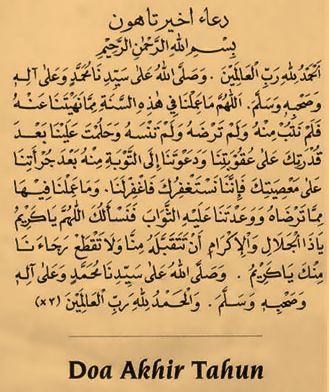 دعاء اخير تاهون
بِسْمِ اللهِ الرَّحْمٰنِ الرَّحِيْمِ
اَلْحَمْدُ لِلّٰهِ رَبِّ الْعَالَمِيْنَ . وَصَلَّى اللهُ عَلَى سَيِّدِنَا مُحَمَّدٍ وَعَلَى آلِهِ
وَصَحْبِهِ وَسَلَّمَ . اَللّٰهُمَّ مَا عَمِلْنَا فِي هٰذِهِ السَّنَةِ مِمَّا نَهَيْتَنَا عَنْهُ
فَلَمْ نَتُبْ مِنْهُ وَلَمْ تَرْضَهُ وَلَمْ تَنْسَهُ وَحَلُمْتَ عَلَيْنَا بَعْدَ
قُدْرَتِكَ عَلَى عُقُوْبَتِنَا وَدَعَوْتَنَا إِلَى التَّوْبَةِ مِنْهُ بَعْدَ جُرْأَتِنَا
عَلَى مَعْصِيَتِكَ فَإِنَّنَا نَسْتَغْفِرُكَ فَاغْفِرْ لَنَا . وَمَا عَمِلْنَا فِيْهَا
مِمَّا تَرْضَاهُ وَوَعَدْتَنَا عَلَيْهِ الثَّوَابَ فَنَسْأَلُكَ اللّٰهُمَّ يَا كَرِيْمُ
يَا ذَا الْجَلَالِ وَالْإِكْرَامِ أَنْ تَتَقَبَّلَهُ مِنَّا وَلَا تَقْطَعْ رَجَاءَنَا
مِنْكَ يَا كَرِيْمُ . وَصَلَّى اللهُ عَلَى سَيِّدِنَا مُحَمَّدٍ وَعَلَى آلِهِ
وَصَحْبِهِ وَسَلَّمَ . وَالْحَمْدُ لِلّٰهِ رَبِّ الْعَالَمِيْنَ (×٣)
Doa Akhir Tahun